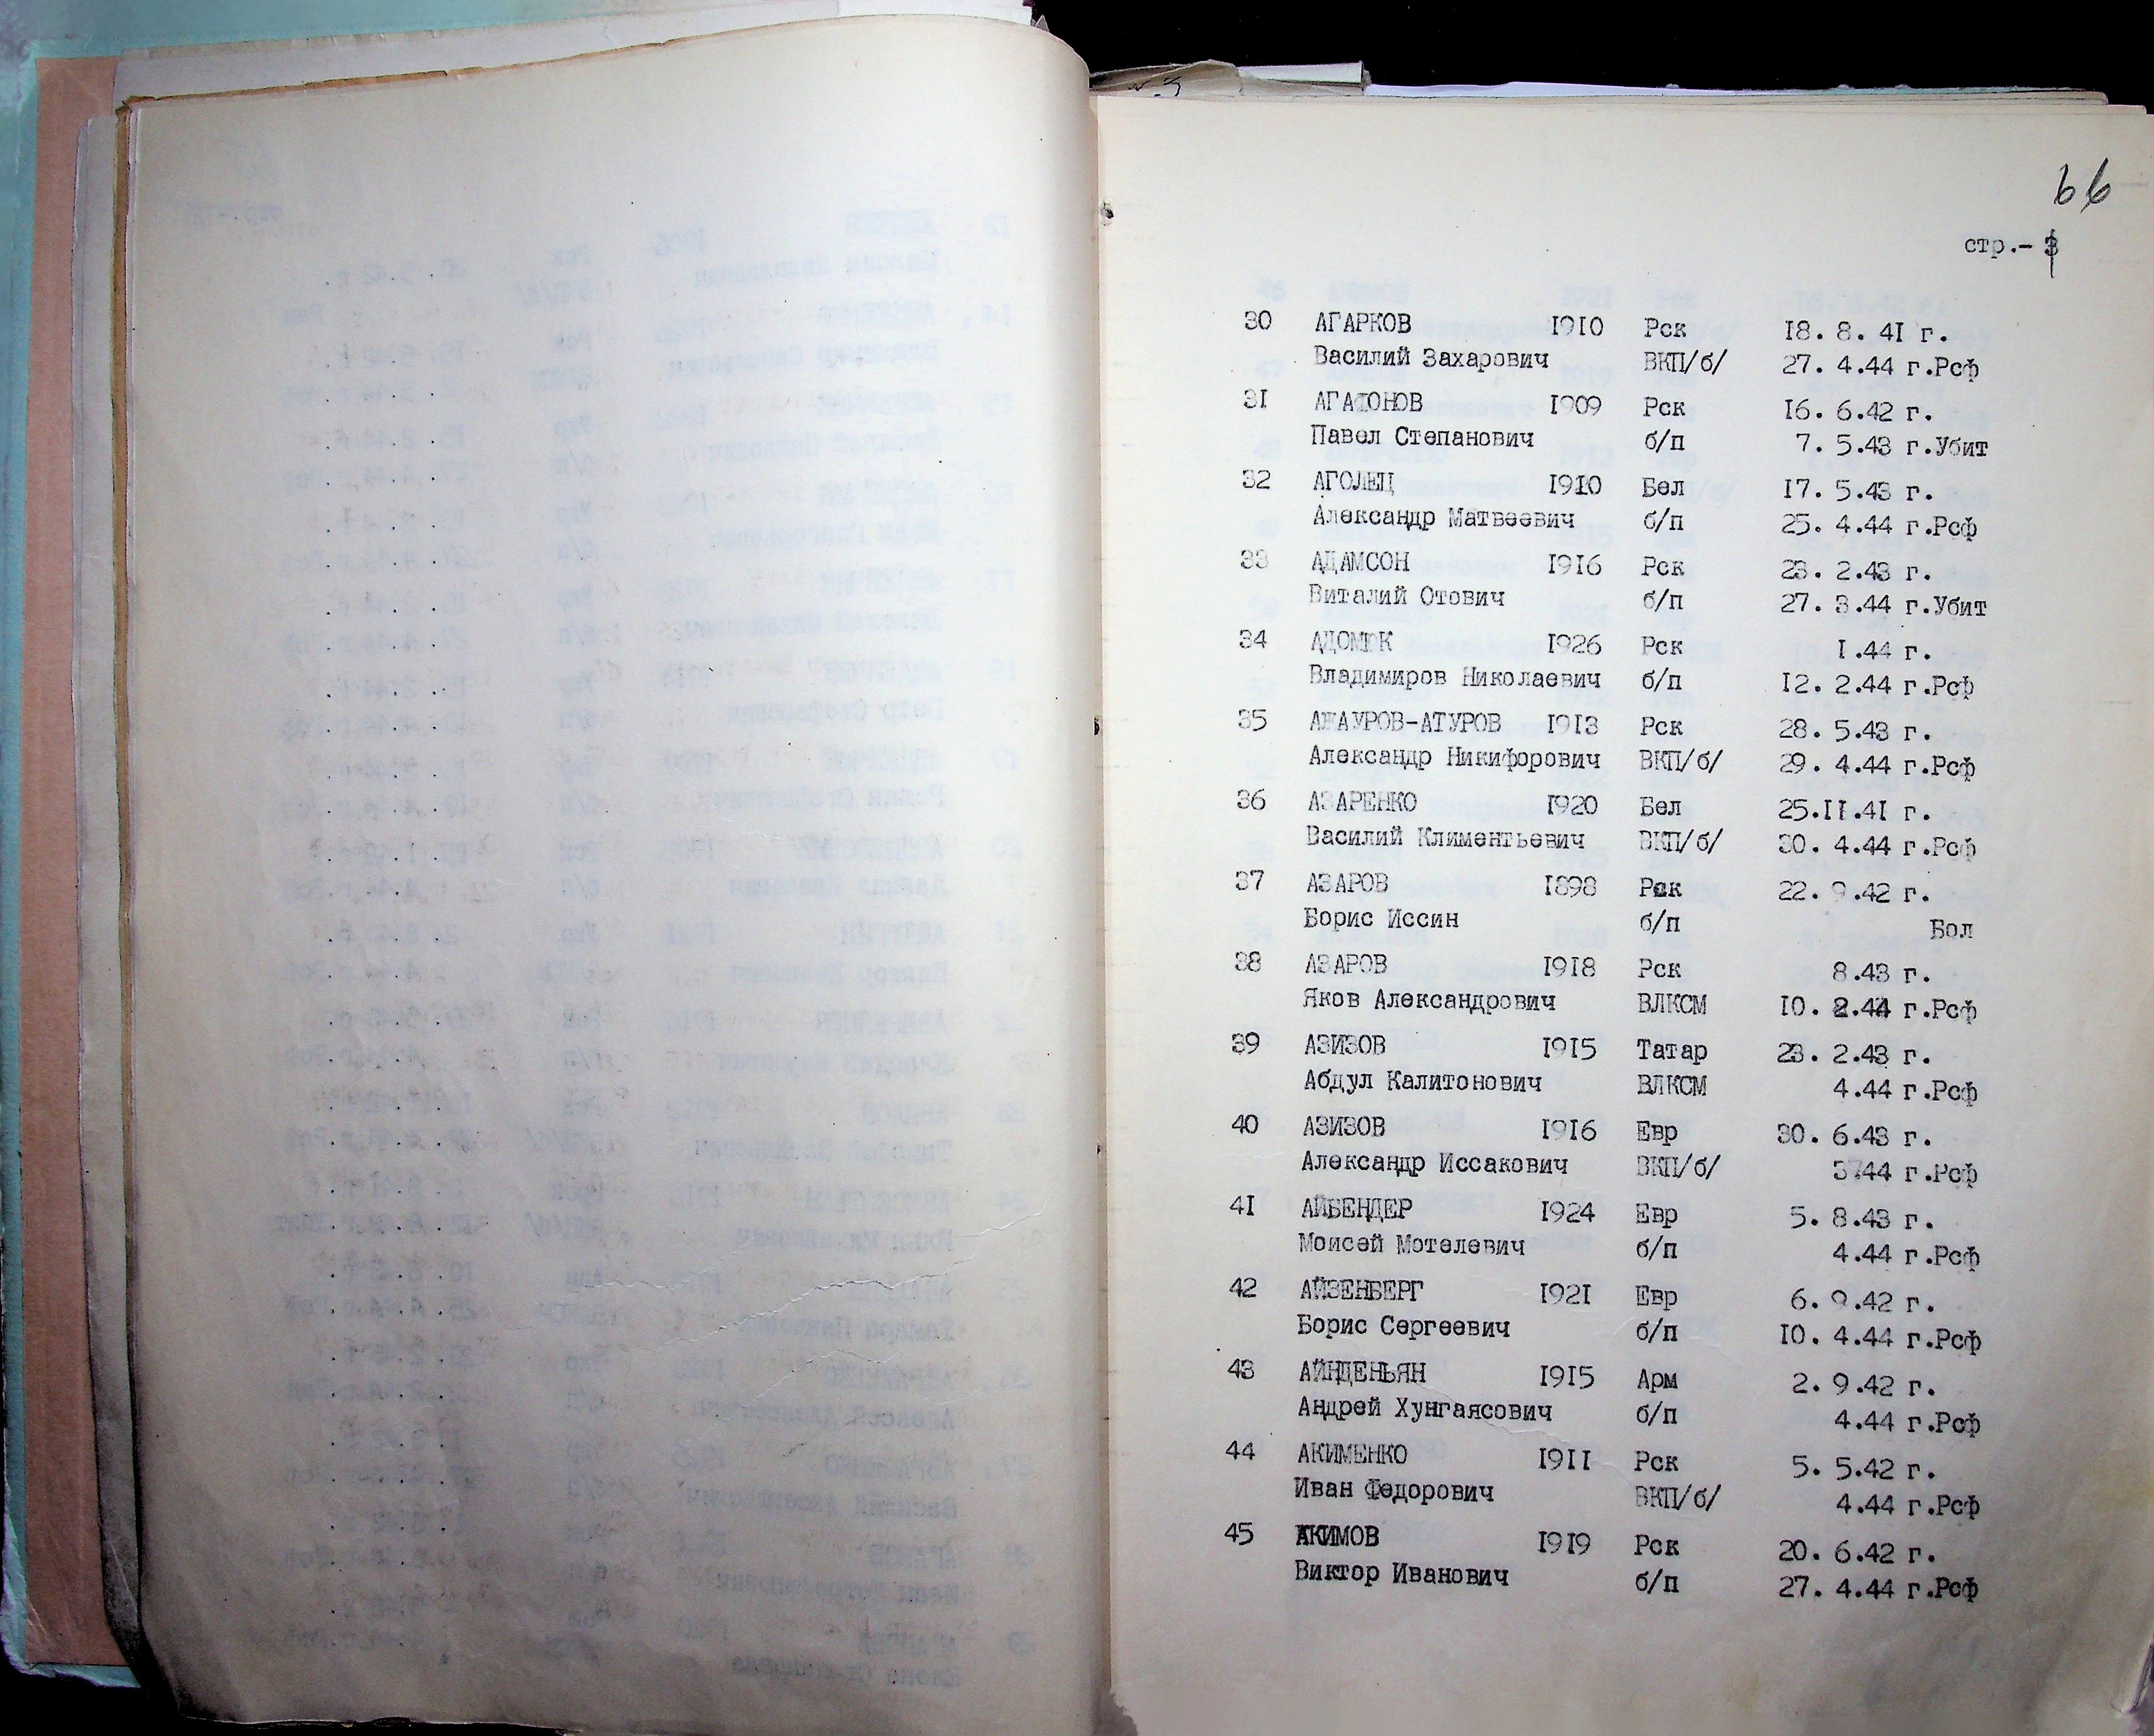 66
стр.- 3
30 АГАРКОВ 1910 Рск 18. 8. 41 г.
Василий Захарович ВКП/б/ 27. 4.44 г.Рсф
31 АГАФОНОВ 1909 Рск 16. 6.42 г.
Павел Степанович б/п 7. 5.43 г.Убит
32 АГОЛЕЦ 1910 Бел 17. 5.43 г.
Александр Матвеевич б/п 25. 4.44 г.Рсф
33 АДАМСОН 1916 Рск 23. 2.43 г.
Виталий Отович б/п 27. 3.44 г.Убит
34 1926 Рск 1.44 г.
Владимиров Николаевич б/п 12. 2.44 г.Рсф
35 АЖАУРОВ-АТУРОВ 1913 Рск 28. 5.43 г.
Александр Никифорович ВКП/б/ 29. 4.44 г.Рсф
36 АЗАРЕНКО 1920 Бел 25.11.41 г.
Василий Климентьевич ВКП/б/ 30. 4.44 г.Рсф
37 АЗАРОВ 1898 Рск 22. 9.42 г.
Борис Иссин б/п Бол
38 АЗАРОВ 1918 Рск 8.43 г.
Яков Александрович ВЛКСМ 10. 2.44 г.Рсф
39 АЗИЗОВ 1915 Татар 23. 2.43 г.
Абдул Калитонович ВЛКСМ 4.44 г.Рсф
40 АЗИЗОВ 1916 Евр 30. 6.43 г.
Александр Иссакович ВКП/б/ г.Рсф
41 АЙБЕНДЕР 1924 Евр 5. 8.43 г.
Моисей Мотелевич б/п 4.44 г.Рсф
42 АЙЗЕНБЕРГ 1921 Евр 6. 9.42 г.
Борис Сергеевич б/п 10. 4.44 г.Рсф
43 АЙНДЕНЬЯН 1915 Арм 2. 9.42 г.
Андрей Хунгаясович б/п 4.44 г.Рсф
44 АКИМЕНКО 1911 Рск 5. 5.42 г.
Иван Федорович ВКП/б/ 4.44 г.Рсф
45 АКИМОВ 1919 Рск 20. 6.42 г.
Виктор Иванович б/п 27. 4.44 г.Рсф